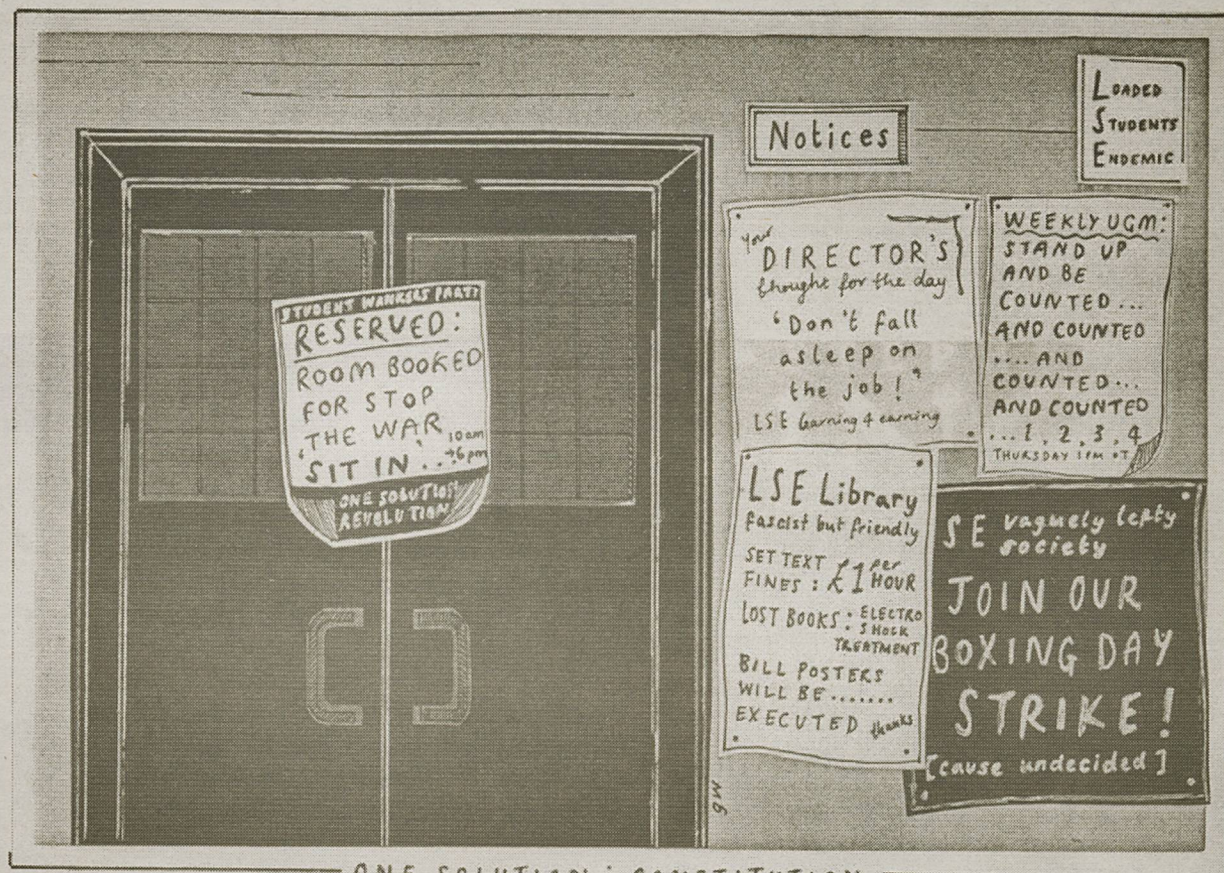 STUDENT WANKERS PARTY
RESERVED:
ROOM BOOKED
FOR STOP
THE WAR
'SIT IN' ...
10am
→6pm
ONE SOLUTION
REVOLUTION
Notices
LOADED
STUDENTS
ENDEMIC
Your
DIRECTOR'S
thought for the day
'Don't fall
asleep on
the job!'
LSE learning 4 earning
WEEKLY UGM:
STAND UP
AND BE
COUNTED...
AND COUNTED
.... AND
COUNTED...
AND COUNTED
...1, 2, 3, 4
THURSDAY 1PM OT
LSE Library
fascist but friendly
SET TEXT
FINES: £1 per HOUR
LOST BOOKS: ELECTRO
SHOCK
TREATMENT
BILL POSTERS
WILL BE.......
EXECUTED thanks
SE vaguely lefty
society
JOIN OUR
BOXING DAY
STRIKE!
[cause undecided]
MG
ONE SOLUTION: CONSTITUTION